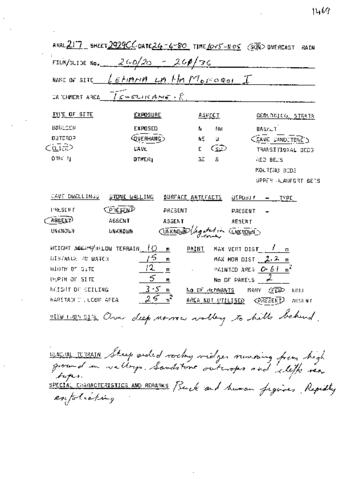 1469
ARAL 217 SHEET 2929CC DATE 24-4-80 TIME SUN OVERCAST RAIN
FILM/SLIDE No.
NAME OF SITE LEHAHA LA HA MOKOROI I
CATCHMENT AREA
TYPE OF SITE EXPOSURE ASPECT GEOLOGICAL STRATA
BOULDER EXPOSED N NW BASALT
OUTCROP OVERHANG NE S CAVE SANDSTONE
CAVE E SW TRANSITIONAL BEDS
OTHER OTHER: SE RED BEDS
MOLTENO BEDS
UPPER BEAUFORT BEDS
CAVE DWELLINGS STONE WALLING SURFACE ARTEFACTS DEPOSIT - TYPE
PRESENT PRESENT PRESENT PRESENT -
ABSENT ABSENT ABSENT ABSENT
UNKNOWN UNKNOWN UNKNOWN Vegetation cover UNKNOWN
HEIGHT ABOVE/BELOW TERRAIN 10 m PAINT MAX VERT DIST 1 m
DISTANCE TO WATER 15 m MAX HOR DIST 2.2 m
WIDTH OF SITE 12 m PAINTED AREA 0.61 m²
DEPTH OF SITE 5 m No OF PANELS 2
HEIGHT OF CEILING 3.5 m No OF REMNANTS MANY FEW NONE
HABITABLE FLOOR AREA 25 m² AREA NOT UTILISED PRESENT ABSENT
VIEW FROM SITE Over deep narrow valley to hills behind.
GENERAL TERRAIN Steep sided rocky ridges running from high
ground in valleys. Sandstone outcrops and cliffs near
tops.
SPECIAL CHARACTERISTICS AND REMARKS Buck and human figures. Rapidly
exfoliating